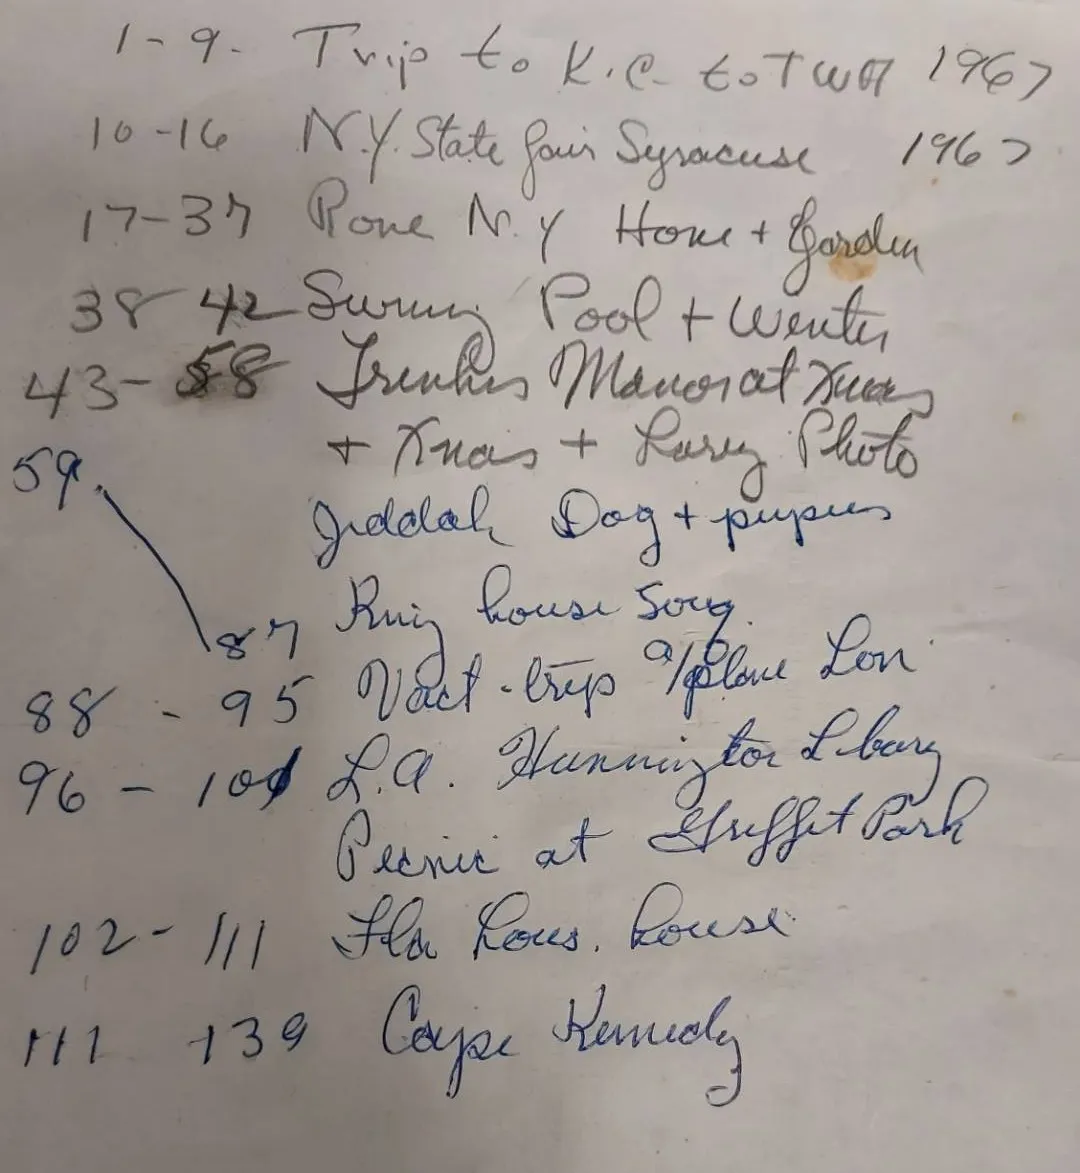 1-9- Trip to K.C. to TWA 1967
10-16 N.Y. State fair Syracuse 1967
17-37 Rome N.Y Home + Garden
38 42 Swimg Pool + Wenter
43-58 Manor at Xmas
+ Xmas + Photo
59.
Jeddah Dog + pupies
house
87
88 - 95 Vact-trip a/plane Lon
96 - 101 L.A. Hunnington Lbary
Picnic at Griffet Park
102 - 111 Fla house
111 139 Cape Kennedy